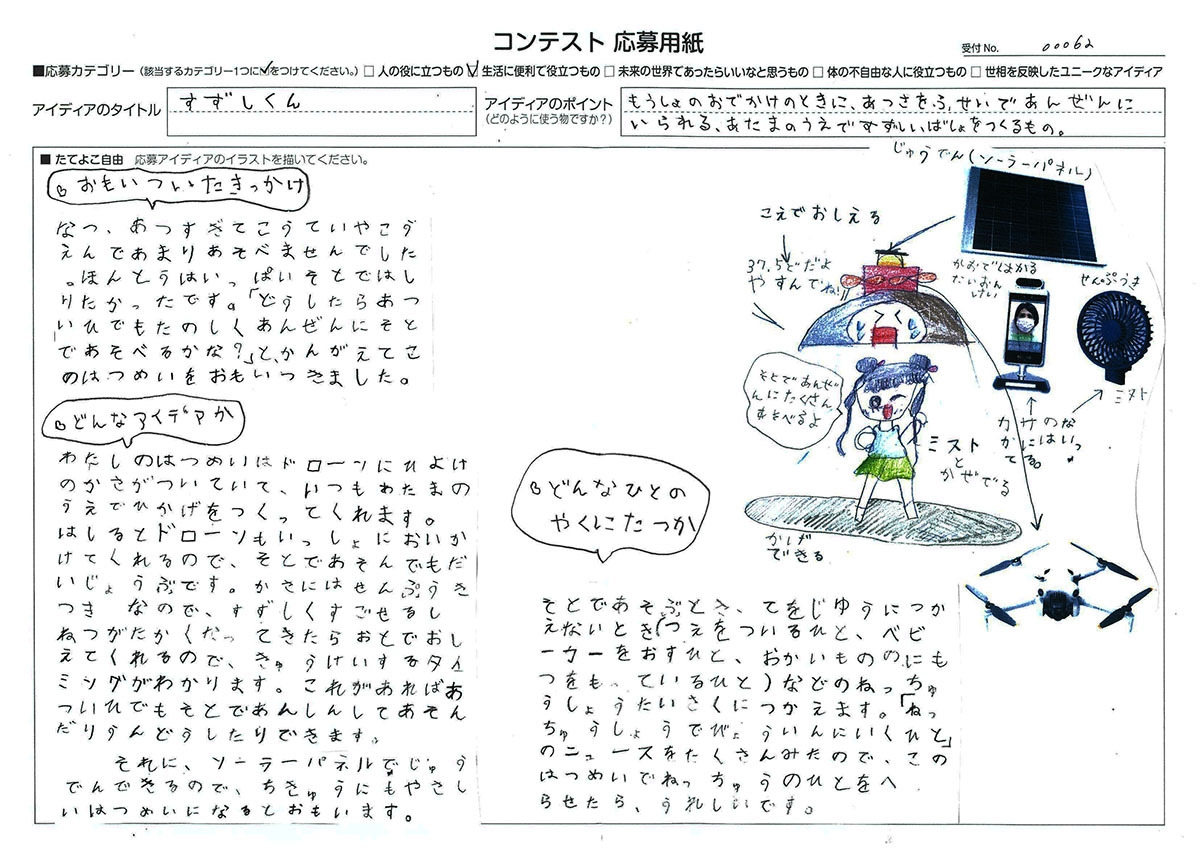 コンテスト 応募用紙
受付No. 00062
■応募カテゴリー（該当するカテゴリー1つに✓をつけてください。）□ 人の役に立つもの ☑ 生活に便利で役立つもの □ 未来の世界であったらいいなと思うもの □ 体の不自由な人に役立つもの □ 世相を反映したユニークなアイディア
アイディアのタイトル
すずしくん
アイディアのポイント
（どのように使う物ですか？）
もうしょのおでかけのときに、あつさをふせいであんぜんに
いられる、あたまのうえですずしいばしょをつくるもの。
■ たてよこ自由 応募アイディアのイラストを描いてください。
おもいついたきっかけ
なつ、あつすぎてこうていやこう
えんであまりあそべませんでした
。ほんとうはいっぱいそとではし
りたかったです。「どうしたらあつ
いひでもたのしくあんぜんにそと
であそべるかな？」と、かんがえてこ
のはつめいをおもいつきました。
どんなアイデアか
わたしのはつめいはドローンにひよけ
のかさがついていて、いつもあたまの
うえでひかげをつくってくれます。
はしるとドローンもいっしょにおいか
けてくれるので、そとであそんでもだ
いじょうぶです。かさにはせんぷうき
つき なので、すずしくすごせるし
ねつがたかくなってきたらおとでおし
えてくれるので、きゅうけいするタイ
ミングがわかります。これがあればあ
ついひでもそとであんしんしてあそん
だりうんどうしたりできます。
それに、ソーラーパネルでじゅう
でんできるので、ちきゅうにもやさし
いはつめいになるとおもいます。
どんなひとの
やくにたつか
そとであそぶとき、てをじゆうにつか
えないとき（つえをついるひと、ベビ
ーカーをおすひと、おかいもののにも
つをもっているひと）などのねっちゅ
うしょうたいさくにつかえます。「ねっ
ちゅうしょうでびょういんにいくひと」
のニュースをたくさんみたので、この
はつめいでねっちゅうのひとをへ
らせたら、うれしいです。
じゅうでん（ソーラーパネル）
こえでおしえる
37.5どだよ
やすんでね!!
かおではかる
たいおん
けい
せんぷうき
ミスト
そとであんぜ
んにたくさん
あそべるよ
カサのな
かにはいっ
てる。
ミスト
と
かぜでる
かげが
できる